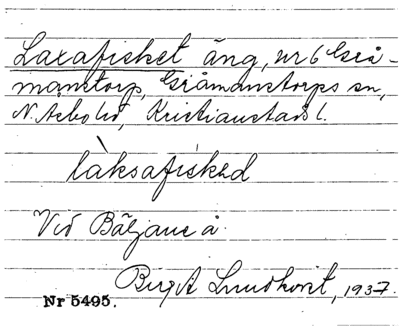 Laxafisket äng, nr 6 Grå-
manstorp, Gråmanstorps sn,
N. Åsbo hd, Kristianstads l.
làksafisked
Vid Bäljane å.
Birgit Lundkvist, 1937.
Nr 5495.